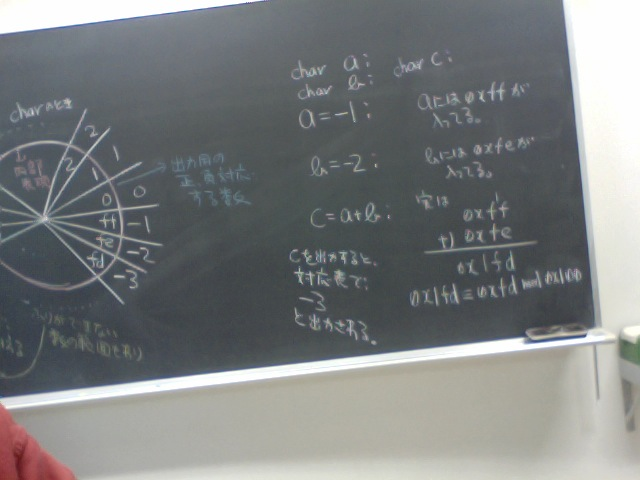 charのとき
2
1
0
-1
-2
-3
2
1
0
ff
fe
fd
内部
表現
出力用の
正、負対応
する数
char a;
char b;
a=-1;
b=-2;
c=a+b;
cを出力すると、
対応表で、
-3
と出力される。
char c;
aには0xffが
入ってる。
bには0xfeが
入ってる。
実は
0xff
+) 0xfe
0x1fd
0x1fd≡0xfd mod 0x100